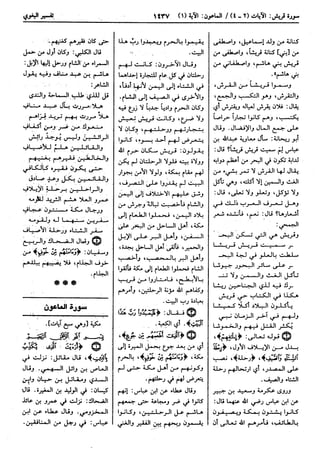 سورة قريش: الآيات (٢ - ٤) / الماعون: الآية (١)
١٤٣٧
تفسير البغوي
كنانة من ولد إسماعيل، واصطفى
من [بني] كنانة قريشاً، واصطفى
من قريش بني هاشم، واصطفاني من
بني هاشم».
وسموا قريشاً من القرش،
والتقرش، وهو التكسب والجمع،
يقال: فلان يقرش لعياله ويقترش أي
يكتسب، وهم كانوا تجاراً حراصاً
على جمع المال والإفضال. وقال
أبو ريحانة: سأل معاوية عبدالله بن
عباس: لم سميت قريش قريشاً؟ قال:
لدابة تكون في البحر من أعظم دوابه
يقال لها القرش لا تمر بشيء من
الغث والسمين إلا أكلته، وهي تأكل
ولا تؤكل، وتعلو ولا تعلى، قال:
وهل تعرف العرب ذلك في
أشعارها؟ قال: نعم، فأنشده شعر
الجمحي:
وقريش هي التي تسكن البحـ
ـر سميت قريش قريشا
سلطت بالعلو في لجة البحـ
ـر على سائر البحور جيوشا
تأكل الغث والسمين ولا تتـ
ـرك فيه لذي الجناحين ريشا
هكذا في الكتاب حي قريش
يأكلون البلاد أكلاً كميشا
ولهم في آخر الزمان نبي
يكثر القتل فيهم والخموشا
قوله تعالى:
على المصدر، أي ارتحالهم رحلة
الشتاء والصيف.
وروى عكرمة وسعيد بن جبير
عن ابن عباس رضي الله عنهما قال:
كانوا يشتون بمكة ويصيفون
بالطائف، فأمرهم الله تعالى أن
يقيموا بالحرم ويعبدوا رب هذا
البيت.
وقال الآخرون: كانت لهم
رحلتان في كل عام للتجارة إحداهما
في الشتاء إلى اليمن لأنها أدفأ،
والأخرى في الصيف إلى الشام.
وكان الحرم وادياً جدباً لا زرع فيه
ولا ضرع، وكانت قريش تعيش
بتجارتهم ورحلتهم، وكان لا
يتعرض لهم أحد بسوء، كانوا
يقولون: قريش سكان حرم الله
وولاة بيته فلولا الرحلتان لم يكن
لهم مقام بمكة، ولولا الأمن بجوار
البيت لم يقدروا على التصرف،
وشق عليهم الاختلاف إلى اليمن
والشام فأخصبت تبالة وجرش من
بلاد اليمن، فحملوا الطعام إلى
مكة، أهل الساحل من البحر على
السفن، وأهل البر على الإبل
والحمير، فألقى أهل الساحل بجدة،
وأهل البر بالمحصب، وأخصب
الشام فحملوا الطعام إلى مكة فألقوا
بالأبطح، فامتاروا من قريب
وكفاهم الله مؤنة الرحلتين، وأمرهم
بعبادة رب البيت.
أي الكعبة.
أي من بعد جوع بحمل الميرة إلى
مكة، بالحرم
وكونهم من أهل مكة حتى لم
يتعرض لهم في رحلتهم.
وقال عطاء عن ابن عباس: إنهم
كانوا في ضر ومجاعة حتى جمعهم
هاشم على الرحلتين، وكانوا
يقسمون ربحهم بين الفقير والغني
حتى كان فقيرهم كغنيهم.
قال الكلبي: وكان أول من حمل
السمراء من الشام ورحل إليها الإبل:
هاشم بن عبد مناف وفيه يقول
الشاعر:
قل للذي طلب السماحة والندى
هلا مررت بآل عبد مناف
هلا مررت بهم تريد قراهم
منعوك من ضر ومن إكفاف
الرائشين وليس يوجد رائش
والقائلين هلم للأضياف
والخالطين فقيرهم بغنيهم
حتى يكون فقيرهم كالكافي
والقائمين بكل وعد صادق
والراحلين برحلة الإيلاف
عمرو العلا هشم الثريد لقومه
ورجال مكة مسنتون عجاف
سفرين سنهما له ولقومه
سفر الشتاء ورحلة الأصياف
قال الضحاك والربيع
وسفيان: من
خوف الجذام، فلا يصيبهم ببلدهم
الجذام.
* * *
سورة الماعون
مكية (وهي سبع آيات).
قال مقاتل: نزلت في
العاص بن وائل السهمي. وقال
السدي ومقاتل بن حيان وابن
كيسان: في الوليد بن المغيرة. قال
الضحاك: نزلت في عمرو بن عائذ
المخزومي. وقال عطاء عن ابن
عباس: في رجل من المنافقين.